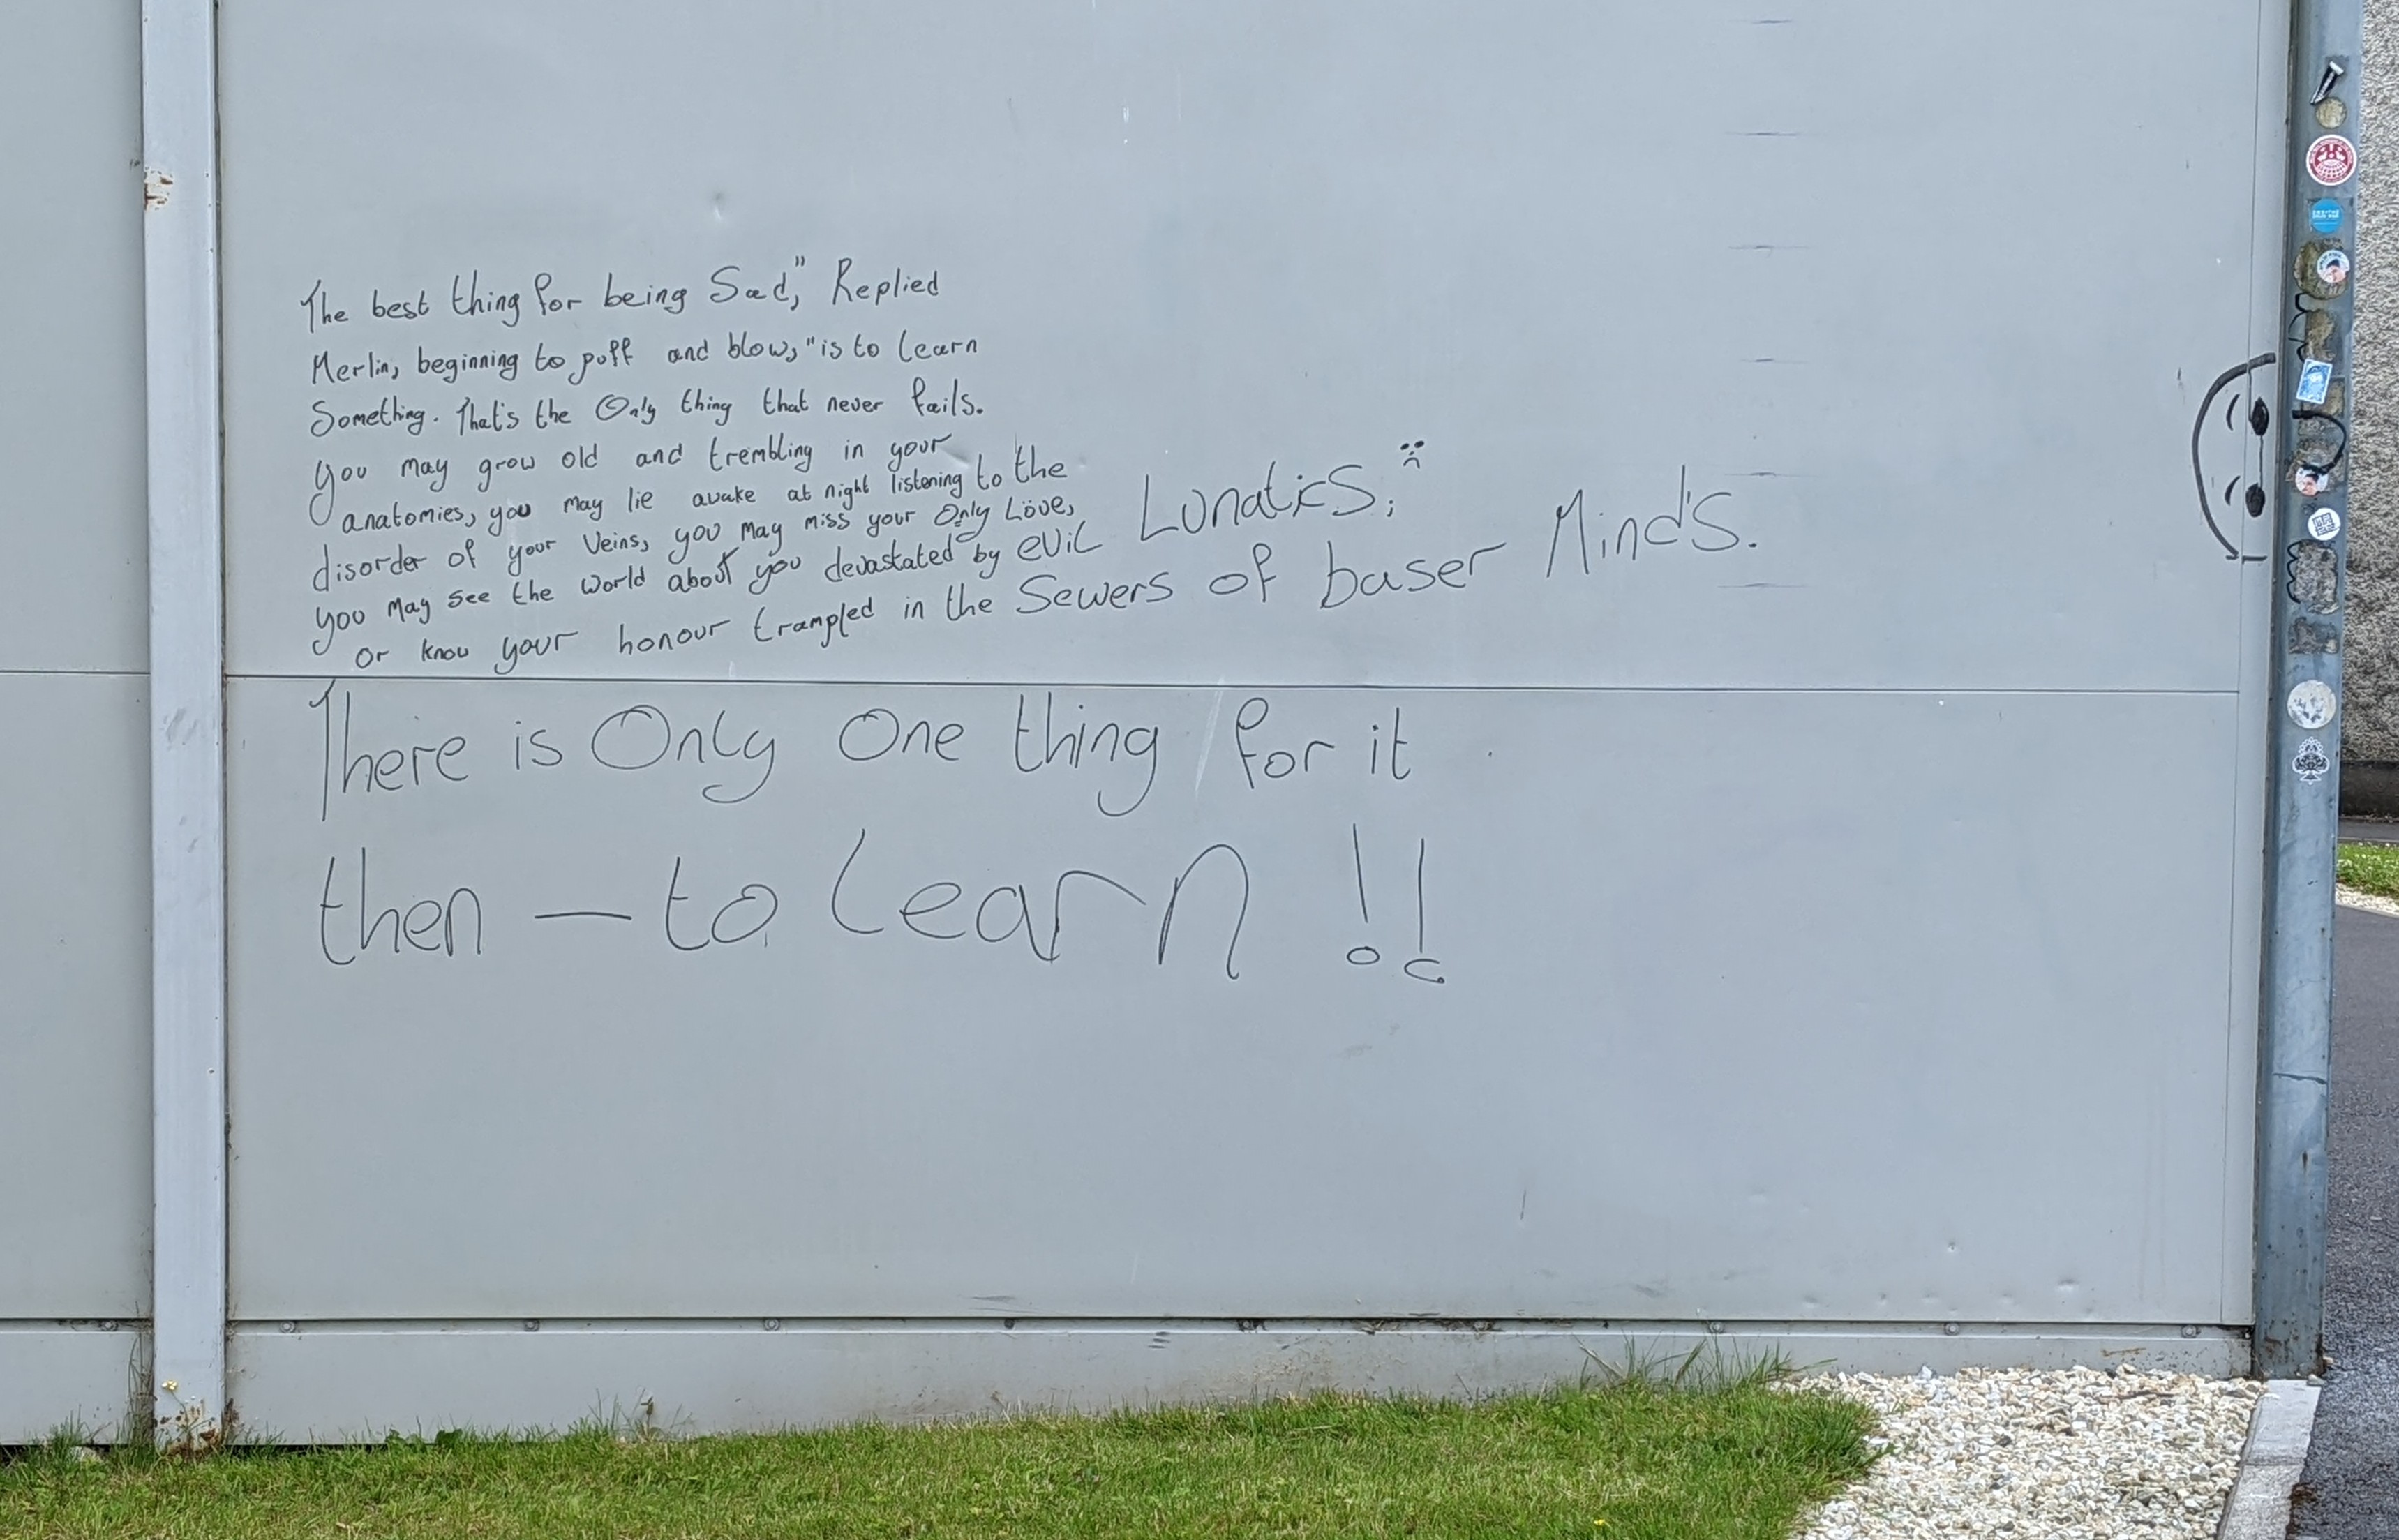 The best thing for being Sad," Replied
Merlin, beginning to puff and blow, "is to learn
Something. That's the Only thing that never fails.
you may grow old and trembling in your
anatomies, you may lie awake at night listening to the
disorder of your Veins, you may miss your Only Löve,
you may see the world about you devastated by evil Lunatics;
or know your honour trampled in the Sewers of baser Mind's.
There is Only One thing for it
then — to learn !!